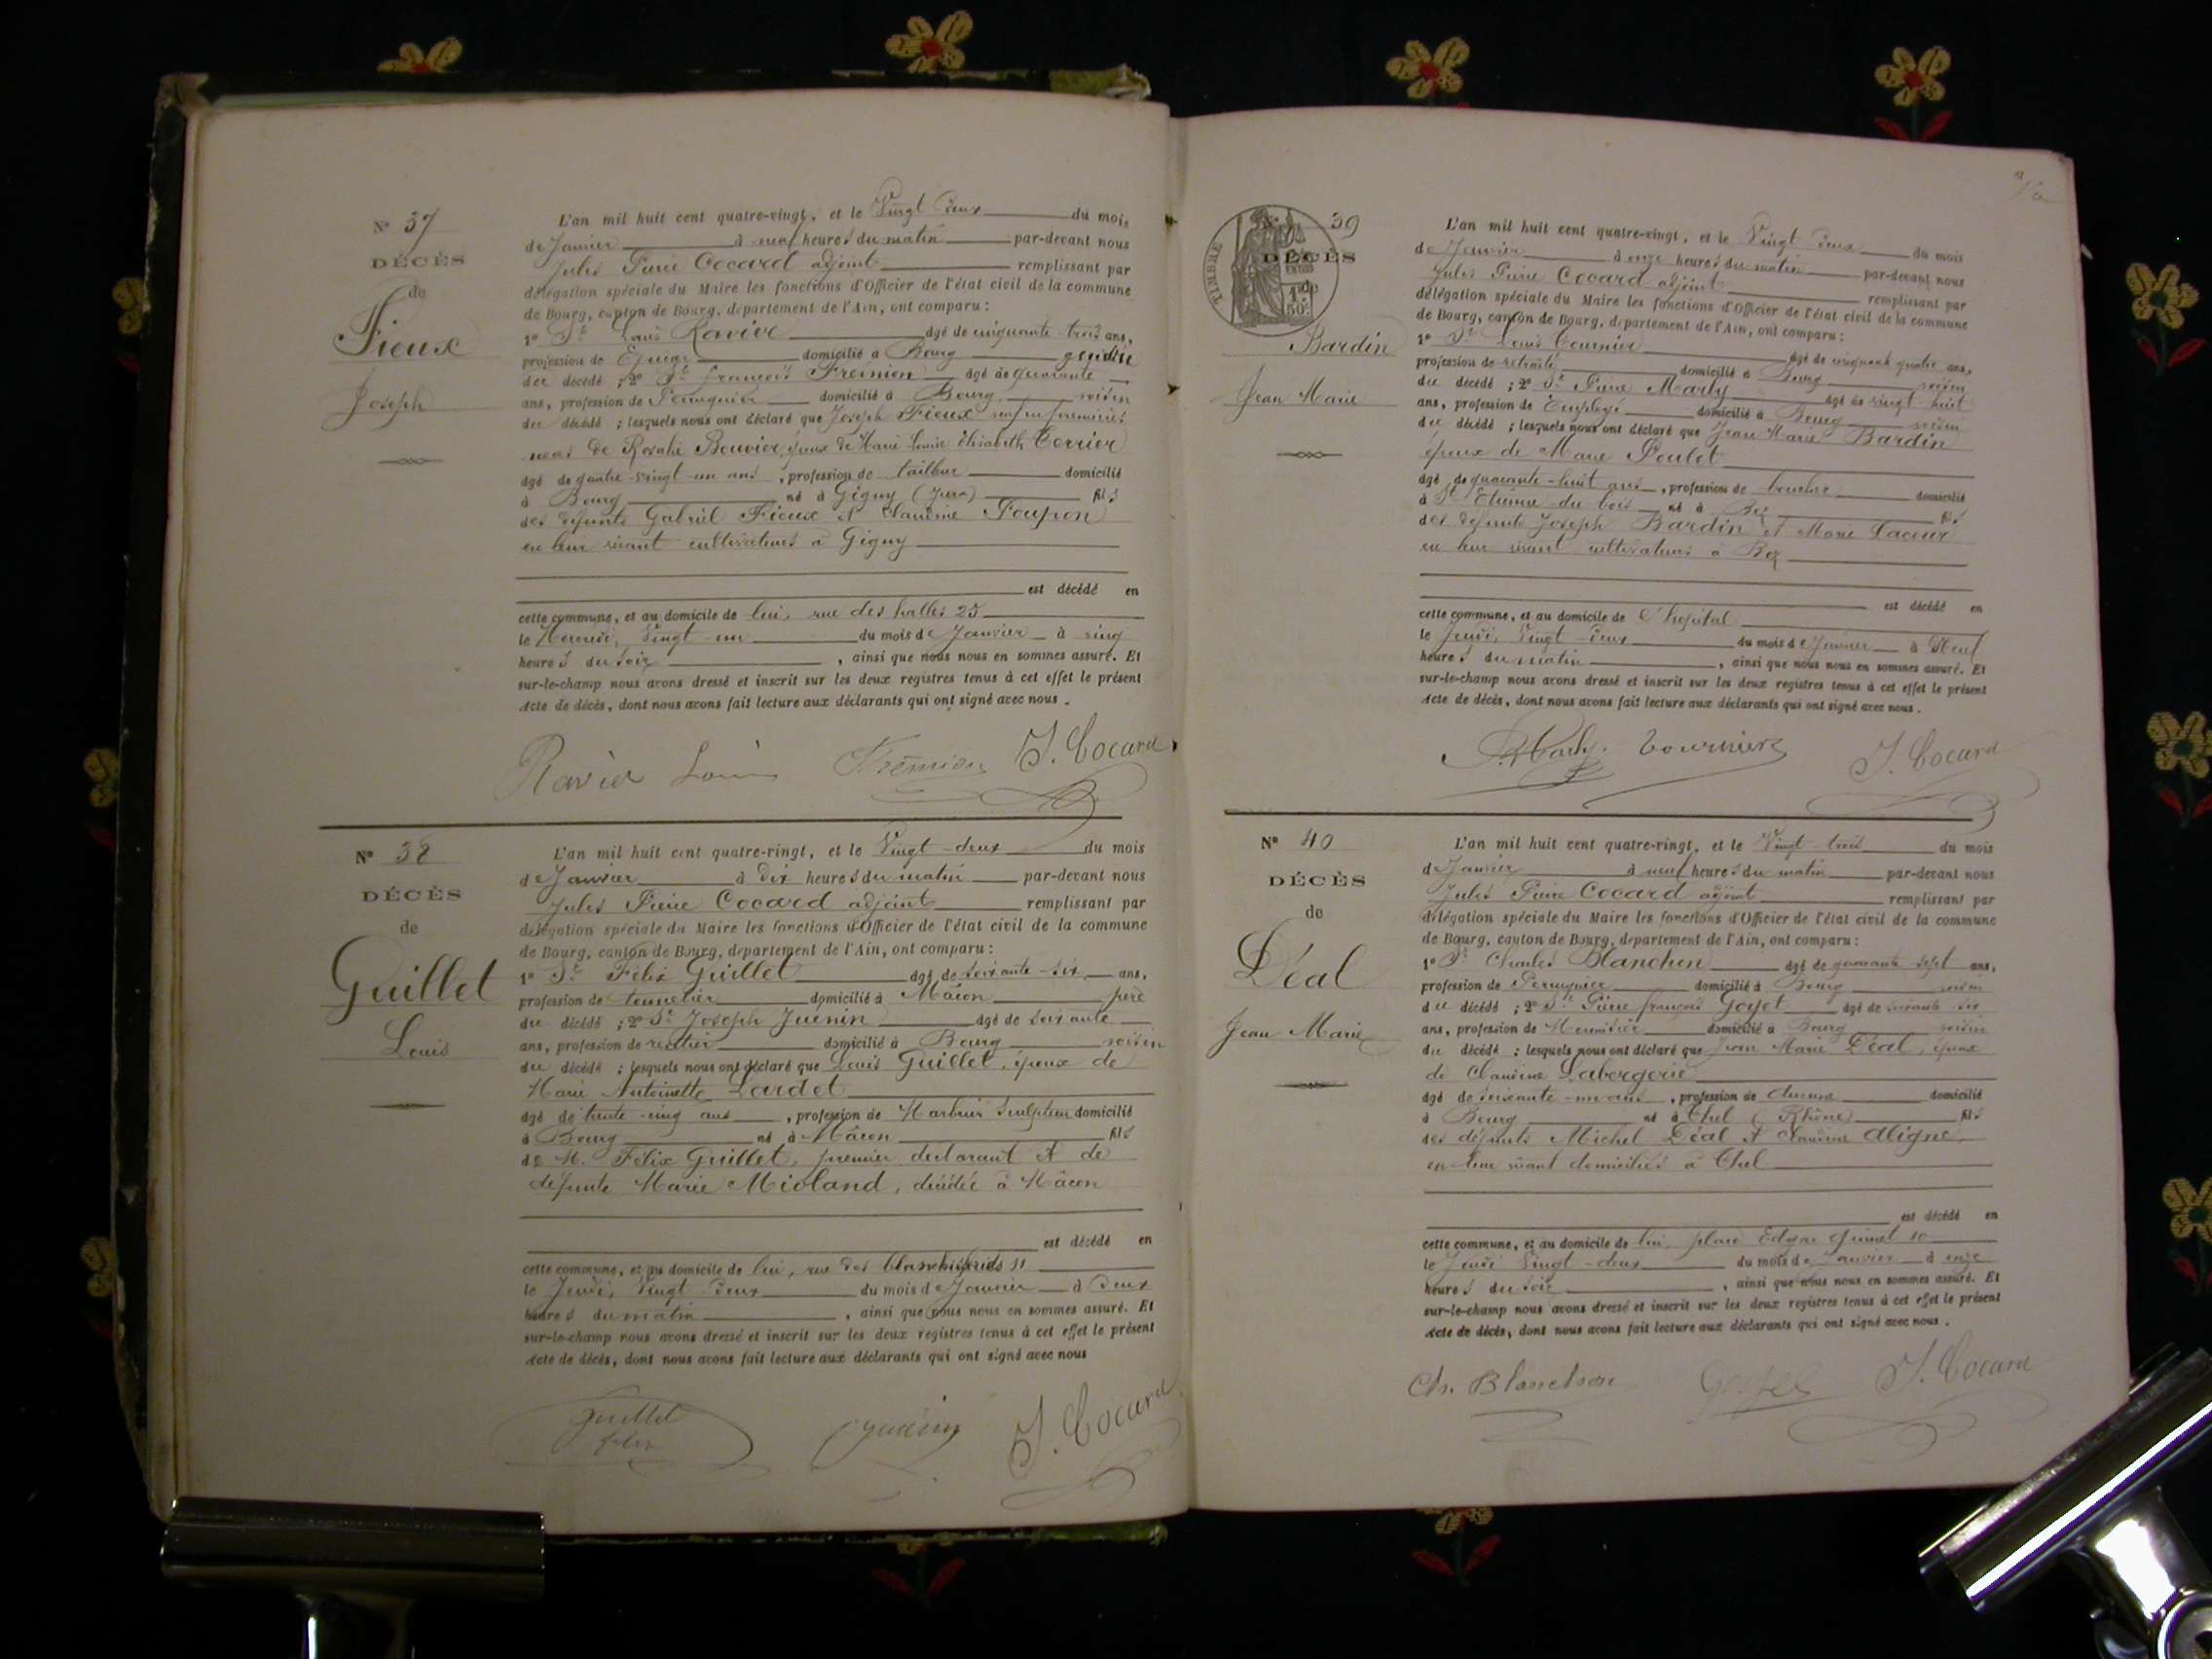 N° 37
DÉCÈS
de
Fieux
Joseph
L'an mil huit cent quatre-vingt, et le Vingt deux du mois
de Janvier à neuf heures du matin par-devant nous
Jules Pierre Cocard adjoint remplissant par
délégation spéciale du Maire les fonctions d'Officier de l'état civil de la commune
de Bourg, canton de Bourg, département de l'Ain, ont comparu :
1° Sr Louis Ravier âgé de cinquante-trois ans,
profession de Epicier domicilié à Bourg gendre
du décédé ; 2° Sr françois Frémion âgé de quarante
ans, profession de Perruquier domicilié à Bourg voisin
du décédé ; lesquels nous ont déclaré que Joseph Fieux veuf en premières
noces de Rosalie Bouvier, époux de Marie Louise Elisabeth Cerrier
âgé de quatre-vingt-un ans, profession de tailleur domicilié
à Bourg né à Gigny (Jura) fils
des défunts Gabriel Fieux et Claudine Poupon
en leur vivant cultivateurs à Gigny
est décédé en
cette commune, et au domicile de lui, rue des halles 25
le Mercredi, Vingt-un du mois de Janvier à cinq
heures du soir, ainsi que nous nous en sommes assuré. Et
sur-le-champ nous avons dressé et inscrit sur les deux registres tenus à cet effet le présent
acte de décès, dont nous avons fait lecture aux déclarants qui ont signé avec nous.
Ravier Louis Frémion J. Cocard
N° 38
DÉCÈS
de
Guillet
Louis
L'an mil huit cent quatre-vingt, et le Vingt-deux du mois
de Janvier à dix heures du matin par-devant nous
Jules Pierre Cocard adjoint remplissant par
délégation spéciale du Maire les fonctions d'Officier de l'état civil de la commune
de Bourg, canton de Bourg, département de l'Ain, ont comparu :
1° Sr Félix Guillet âgé de soixante-six ans,
profession de tonnelier domicilié à Mâcon père
du décédé ; 2° Sr Joseph Juenin âgé de soixante
ans, profession de rentier domicilié à Bourg voisin
du décédé ; lesquels nous ont déclaré que Louis Guillet, époux de
Marie Antoinette Lardet
âgé de trente-cinq ans, profession de Marbrier Sculpteur domicilié
à Bourg né à Mâcon fils
de M. Félix Guillet, premier déclarant et de
défunte Marie Mioland, décédée à Mâcon
est décédé en
cette commune, et au domicile de lui, rue des blanchisseries 11
le Jeudi, Vingt deux du mois de Janvier à deux
heures du matin, ainsi que nous nous en sommes assuré. Et
sur-le-champ nous avons dressé et inscrit sur les deux registres tenus à cet effet le présent
acte de décès, dont nous avons fait lecture aux déclarants qui ont signé avec nous
Guillet felix Juenin J. Cocard
N° 39
TIMBRE
1F 50c
DÉCÈS
de
Bardin
Jean Marie
L'an mil huit cent quatre-vingt, et le Vingt deux du mois
de Janvier à onze heures du matin par-devant nous
Jules Pierre Cocard adjoint remplissant par
délégation spéciale du Maire les fonctions d'Officier de l'état civil de la commune
de Bourg, canton de Bourg, département de l'Ain, ont comparu :
1° Sr Louis Tournier âgé de cinquante quatre ans,
profession de retraité domicilié à Bourg voisin
du décédé ; 2° Sr Pierre Marly âgé de vingt-huit
ans, profession de Employé domicilié à Bourg voisin
du décédé ; lesquels nous ont déclaré que Jean Marie Bardin
époux de Marie Poulet
âgé de quarante-huit ans, profession de boucher domicilié
à St Etienne du bois né à Bey fils
des défunts Joseph Bardin et Marie Lacour
en leur vivant cultivateurs à Bey
est décédé en
cette commune, et au domicile de l'hopital
le Jeudi, Vingt-deux du mois de Janvier à Neuf
heures du matin, ainsi que nous nous en sommes assuré. Et
sur-le-champ nous avons dressé et inscrit sur les deux registres tenus à cet effet le présent
acte de décès, dont nous avons fait lecture aux déclarants qui ont signé avec nous.
P. Marly Tournier J. Cocard
N° 40
DÉCÈS
de
Déal
Jean Marie
L'an mil huit cent quatre-vingt, et le Vingt-trois du mois
de Janvier à neuf heures du matin par-devant nous
Jules Pierre Cocard adjoint remplissant par
délégation spéciale du Maire les fonctions d'Officier de l'état civil de la commune
de Bourg, canton de Bourg, département de l'Ain, ont comparu :
1° Sr Charles Blanchon âgé de quarante-sept ans,
profession de Perruquier domicilié à Bourg voisin
du décédé ; 2° Sr Pierre françois Goyet âgé de soixante-six
ans, profession de Menuisier domicilié à Bourg voisin
du décédé ; lesquels nous ont déclaré que Jean Marie Déal, époux
de Claudine Labergerie
âgé de soixante-un ans, profession de Aucune domicilié
à Bourg né à Thel (Rhône) fils
des défunts Michel Déal et Claudine Aligne,
en leur vivant domiciliés à Thel
est décédé en
cette commune, et au domicile de lui, place Edgar Quinet 10
le Jeudi Vingt-deux du mois de Janvier à onze
heures du soir, ainsi que nous nous en sommes assuré. Et
sur-le-champ nous avons dressé et inscrit sur les deux registres tenus à cet effet le présent
acte de décès, dont nous avons fait lecture aux déclarants qui ont signé avec nous.
Ch. Blanchon Goyet J. Cocard